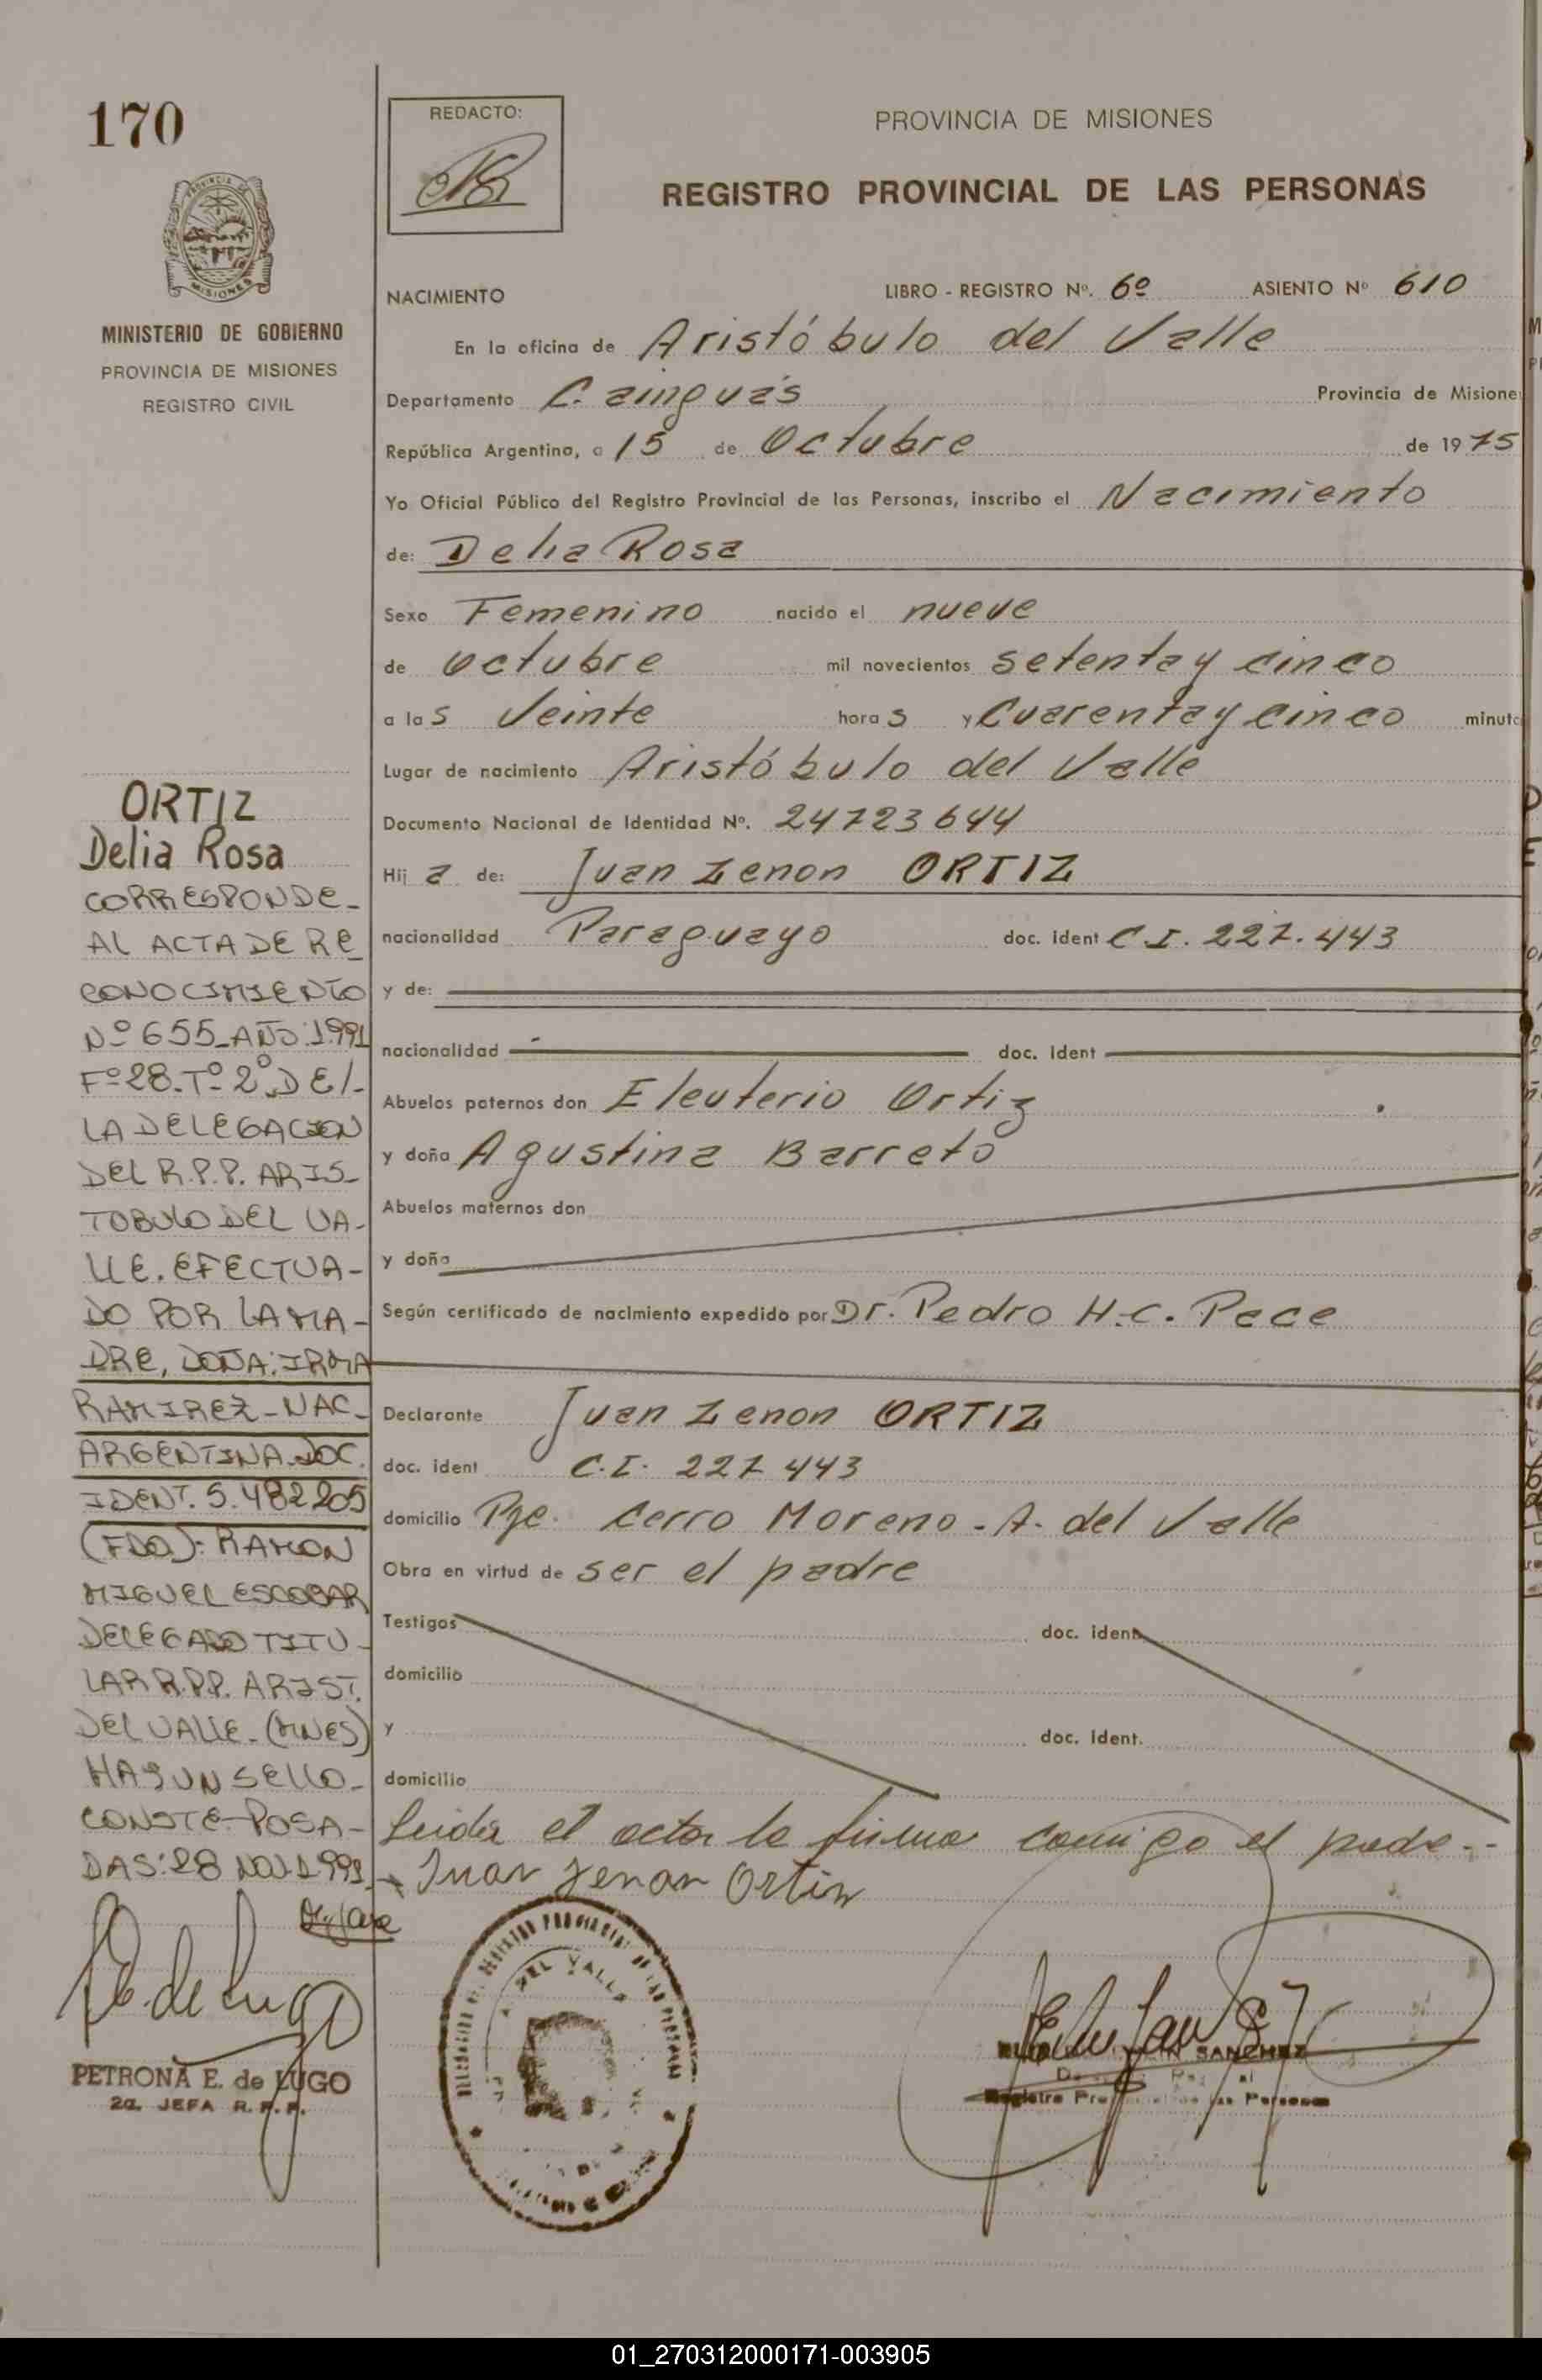 170
REDACTO:
PROVINCIA DE MISIONES
REGISTRO PROVINCIAL DE LAS PERSONAS
PROVINCIA DE
MISIONES
MINISTERIO DE GOBIERNO
PROVINCIA DE MISIONES
REGISTRO CIVIL
NACIMIENTO LIBRO - REGISTRO Nº. 6º ASIENTO Nº 610
En la oficina de Aristóbulo del Valle
Departamento Cainguás Provincia de Misione
República Argentina, a 15 de Octubre de 1975
Yo Oficial Público del Registro Provincial de las Personas, inscribo el Nacimiento
de: Delia Rosa
Sexo Femenino nacido el nueve
de octubre mil novecientos setenta y cinco
a las Veinte horas y Cuarenta y cinco minuto
Lugar de nacimiento Aristóbulo del Valle
Documento Nacional de Identidad Nº. 24723644
Hija de: Juan Zenon ORTIZ
nacionalidad Paraguayo doc. ident C.I. 227.443
y de:
nacionalidad doc. ident
Abuelos paternos don Eleuterio Ortiz
y doña Agustina Barreto
Abuelos maternos don
y doña
Según certificado de nacimiento expedido por Dr. Pedro H.C. Pace
Declarante Juan Zenon ORTIZ
doc. ident C.I. 227 443
domicilio Pje. Cerro Moreno - A. del Valle
Obra en virtud de ser el padre
Testigos doc. ident
domicilio
y doc. ident.
domicilio
Leida el acta la firma conmigo el padre.-
Juan Zenon Ortiz
ORTIZ
Delia Rosa
CORRESPONDE-
AL ACTA DE RE
CONOCIMIENTO
Nº 655-AÑO:1.991
Fº28-Tº-2º DE/-
LA DELEGACION
DEL R.P.P. ARIS-
TOBULO DEL VA-
LLE. EFECTUA-
DO POR LA MA-
DRE, DOÑA: IRMA
RAMIREZ-NAC-
ARGENTINA. DOC.
IDENT. 5.482205
(FDO): RAMON
MIGUEL ESCOBAR
DELEGADO TITU-
LAR R.P.P. ARIST.
DEL VALLE-(MNES)
HAY UN SELLO-
CONSTE-POSA-
DAS:28 NOV 1.991
PETRONA E. de LUGO
2a. JEFA R.P.P.
DEL VALLE
SANCHEZ
Registro Pro las Personas
01_270312000171-003905